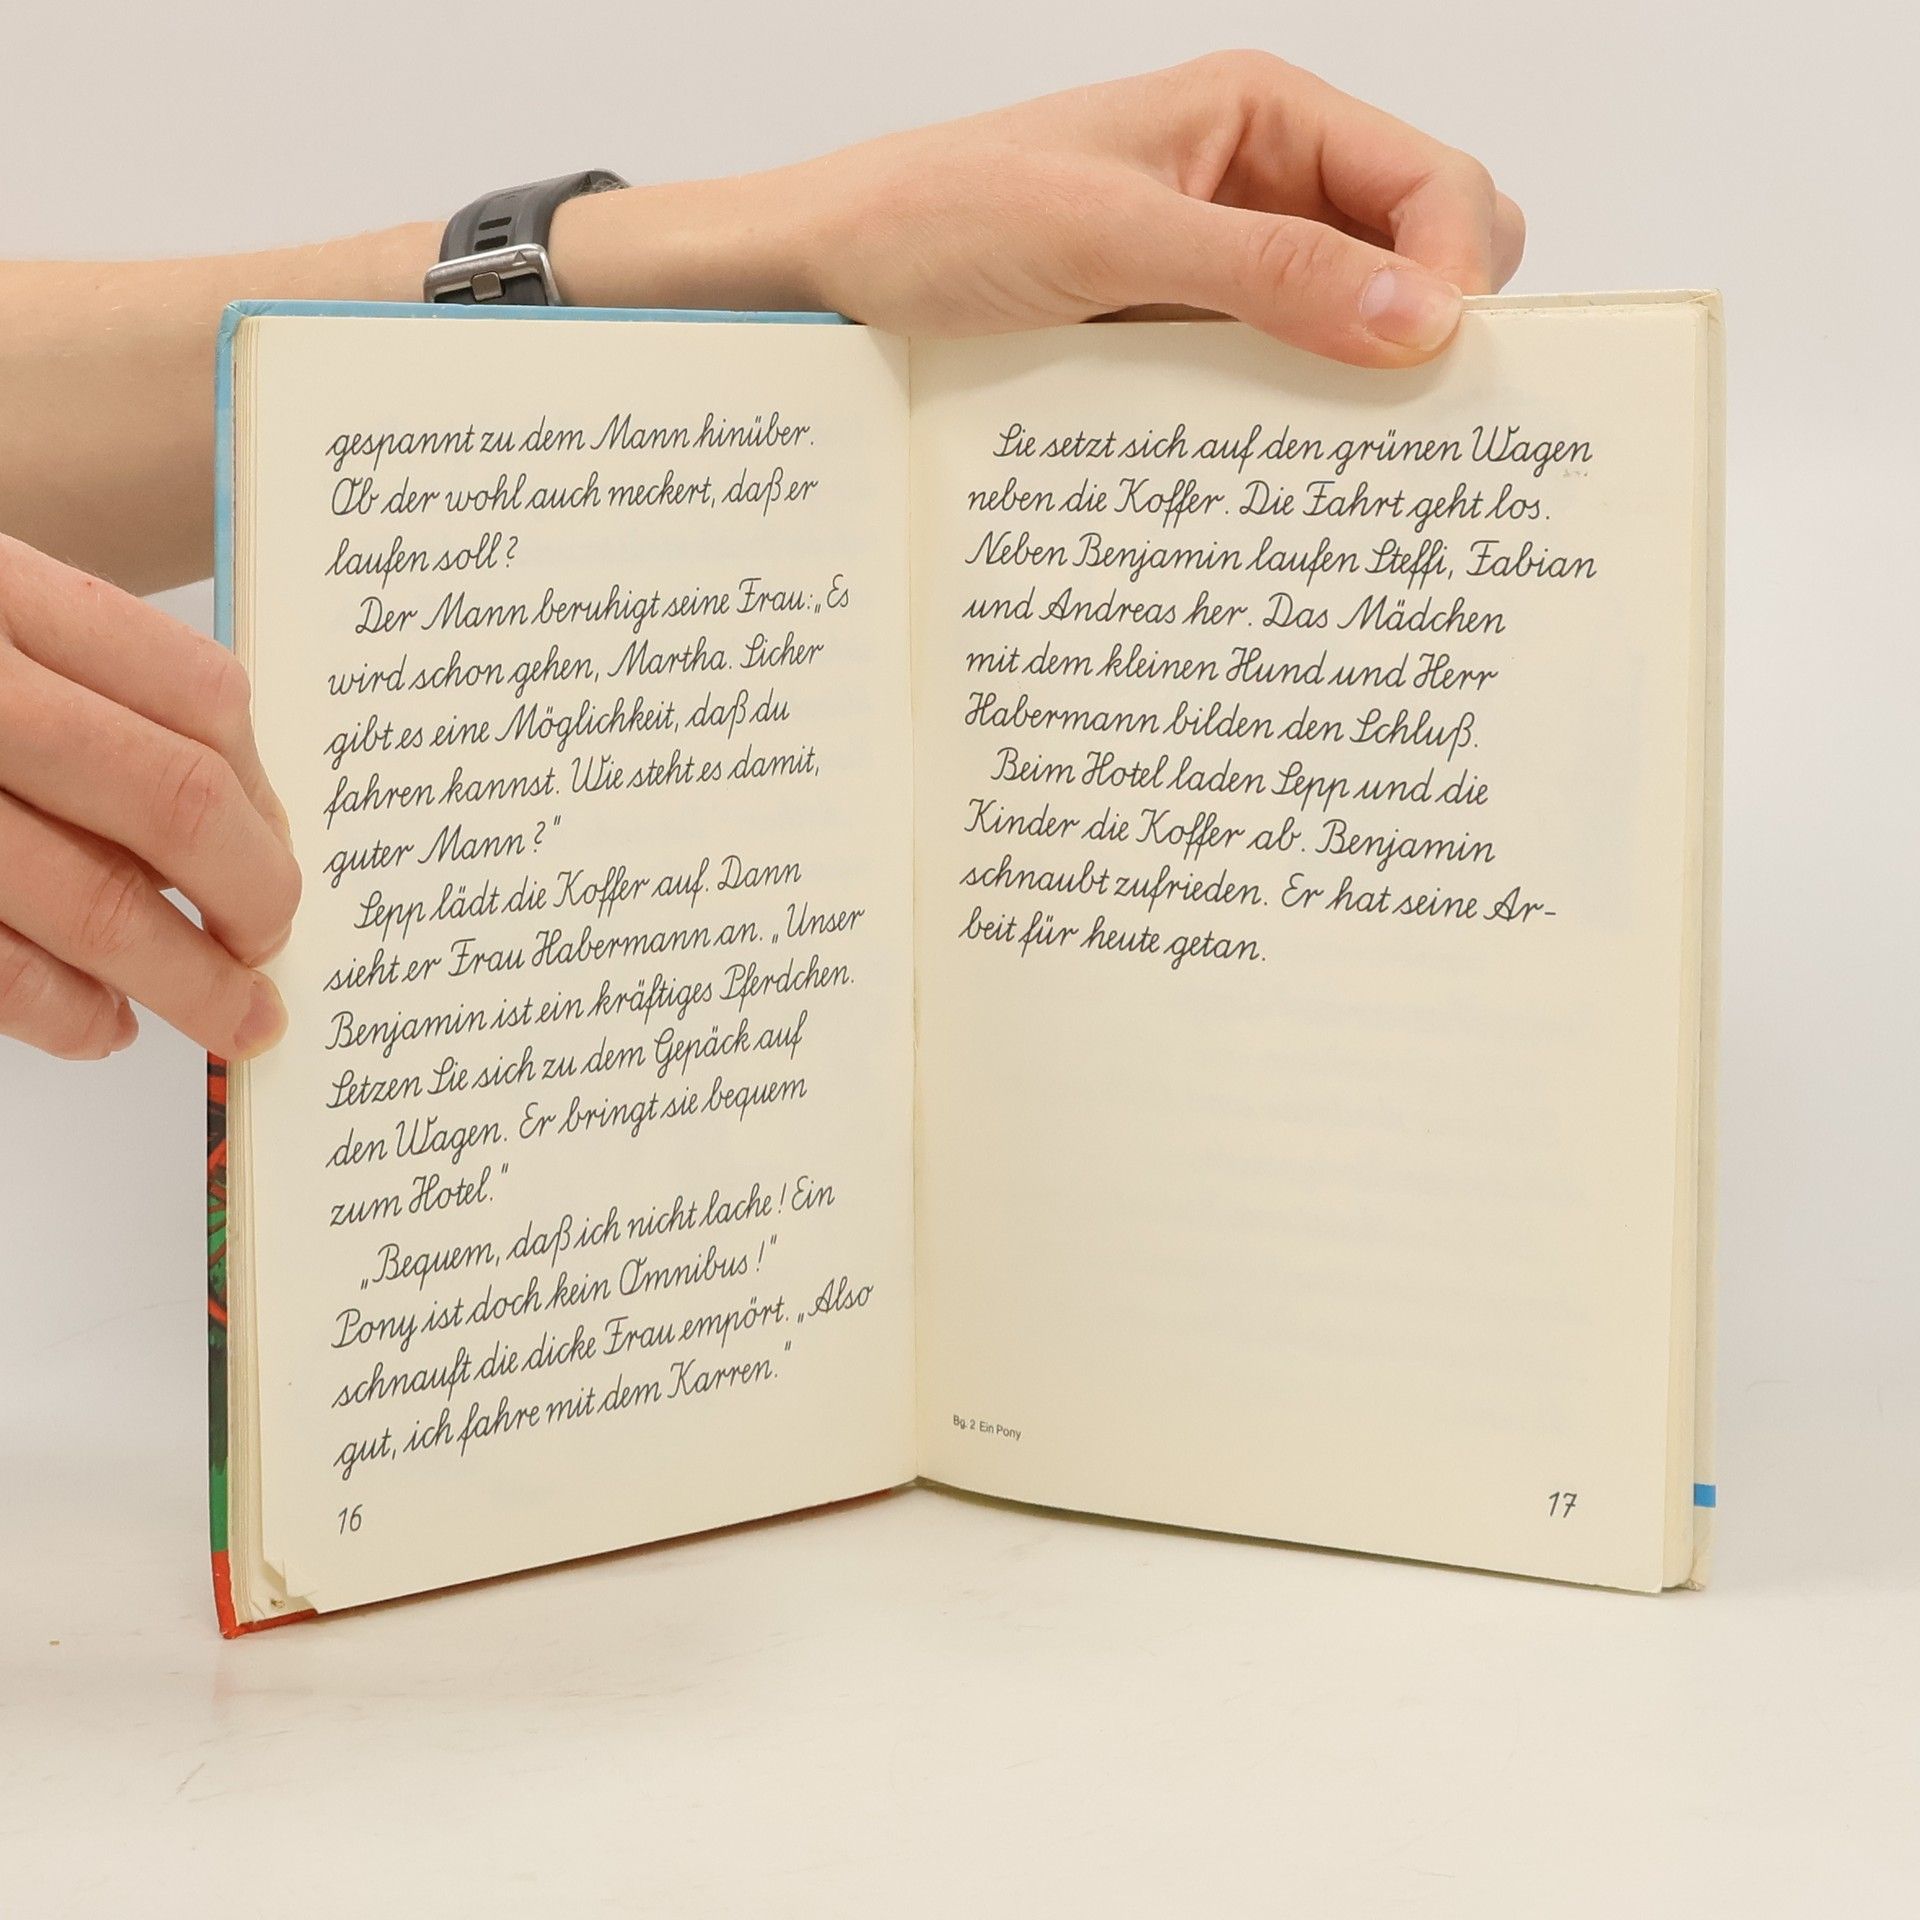 gespannt zu dem Mann hinüber.
Ob der wohl auch meckert, daß er
laufen soll?
Der Mann beruhigt seine Frau: „Es
wird schon gehen, Martha. Sicher
gibt es eine Möglichkeit, daß du
fahren kannst. Wie steht es damit,
guter Mann?"
Sepp lädt die Koffer auf. Dann
sieht er Frau Habermann an. „Unser
Benjamin ist ein kräftiges Pferdchen.
Setzen Sie sich zu dem Gepäck auf
den Wagen. Er bringt sie bequem
zum Hotel."
„Bequem, daß ich nicht lache! Ein
Pony ist doch kein Omnibus!"
schnauft die dicke Frau empört. „Also
gut, ich fahre mit dem Karren."
16
Sie setzt sich auf den grünen Wagen
neben die Koffer. Die Fahrt geht los.
Neben Benjamin laufen Steffi, Fabian
und Andreas her. Das Mädchen
mit dem kleinen Hund und Herr
Habermann bilden den Schluß.
Beim Hotel laden Sepp und die
Kinder die Koffer ab. Benjamin
schnaubt zufrieden. Er hat seine Ar-
beit für heute getan.
Bg. 2 Ein Pony
17